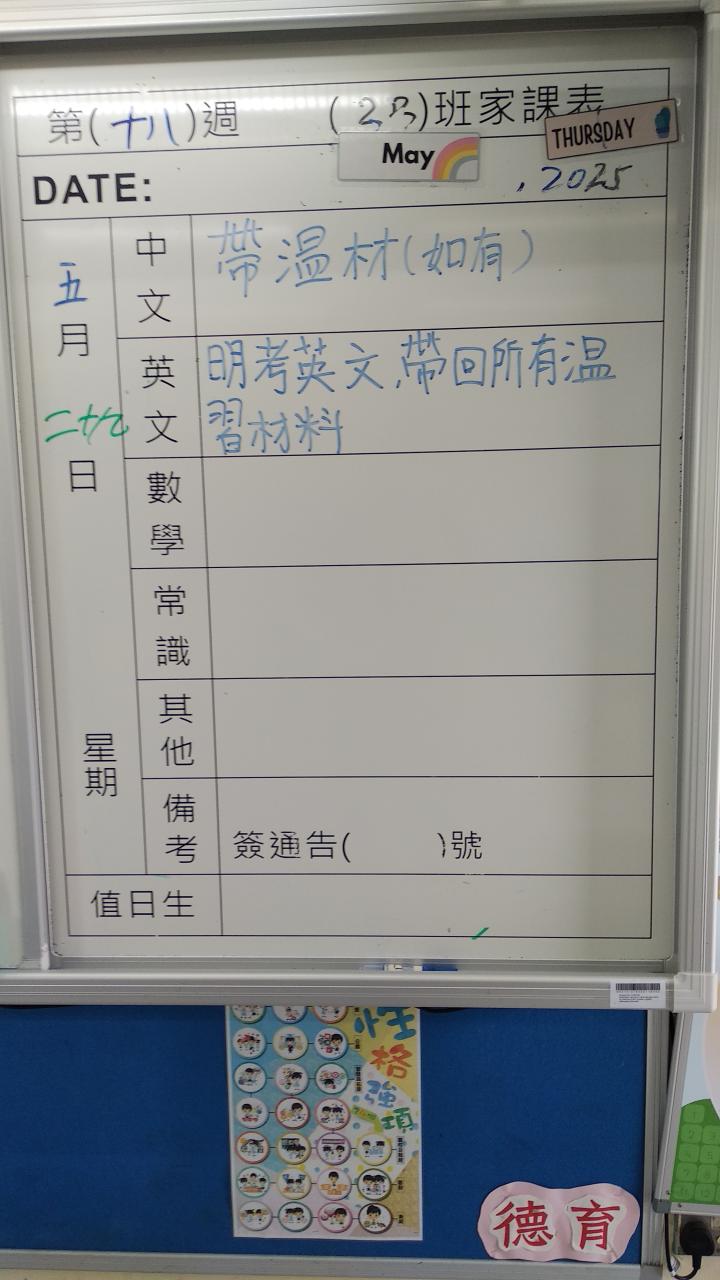 第(十八)週 (2B)班家課表
THURSDAY
May
DATE: , 2025
五月二十九日
星期
中文
帶温材(如有)
英文
明考英文,帶回所有温
習材料
數學
常識
其他
備考
簽通告( )號
值日生
性格強項
德育